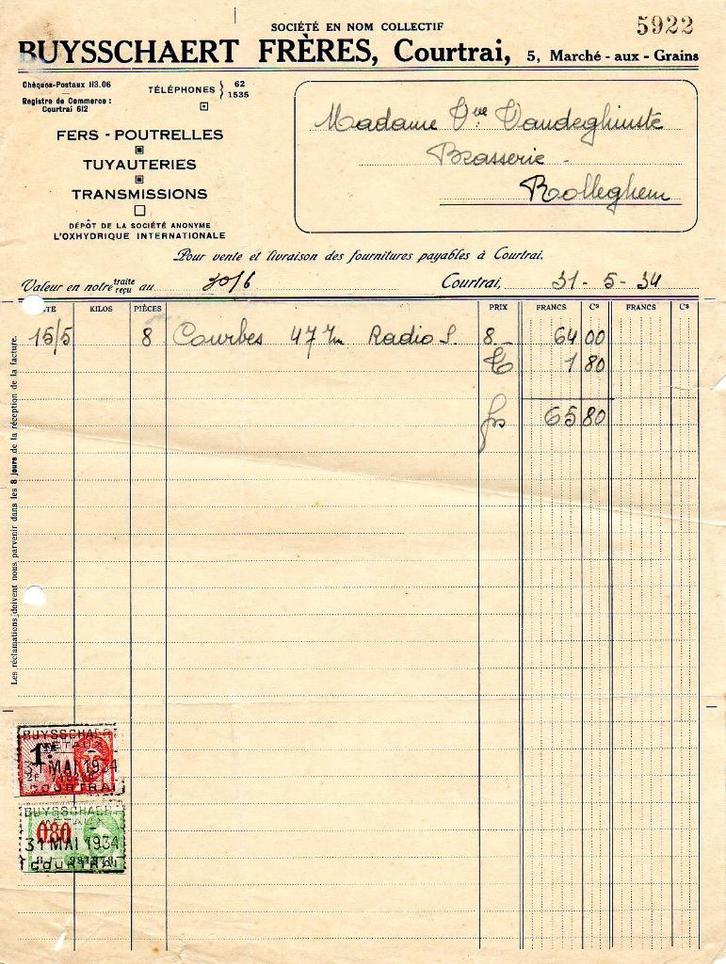 5922
SOCIÉTÉ EN NOM COLLECTIF
BUYSSCHAERT FRÈRES, Courtrai, 5, Marché-aux-Grains
Chèques-Postaux 113.06
Registre de Commerce :
Courtrai 612
TÉLÉPHONES } 62
1535
FERS - POUTRELLES
TUYAUTERIES
TRANSMISSIONS
DÉPÔT DE LA SOCIÉTÉ ANONYME
L'OXHYDRIQUE INTERNATIONALE
Madame Vve Vandeghinste
Brasserie -
Rolleghem
Pour vente et livraison des fournitures payables à Courtrai.
Valeur en notre traite reçu au 30/6 Courtrai, 31-5-34
TE KILOS PIÈCES PRIX FRANCS Cs FRANCS Cs
15/5 8 Courbes 47 Radio S. 8.- 64 00
1 80
frs 65 80
Les réclamations doivent nous parvenir dans les 8 jours de la réception de la facture.
BUYSSCHAER
METAUX
1
31 MAI 1934
COURTRAI
BUYSSCHAER
METAUX
080
31 MAI 1934
COURTRAI